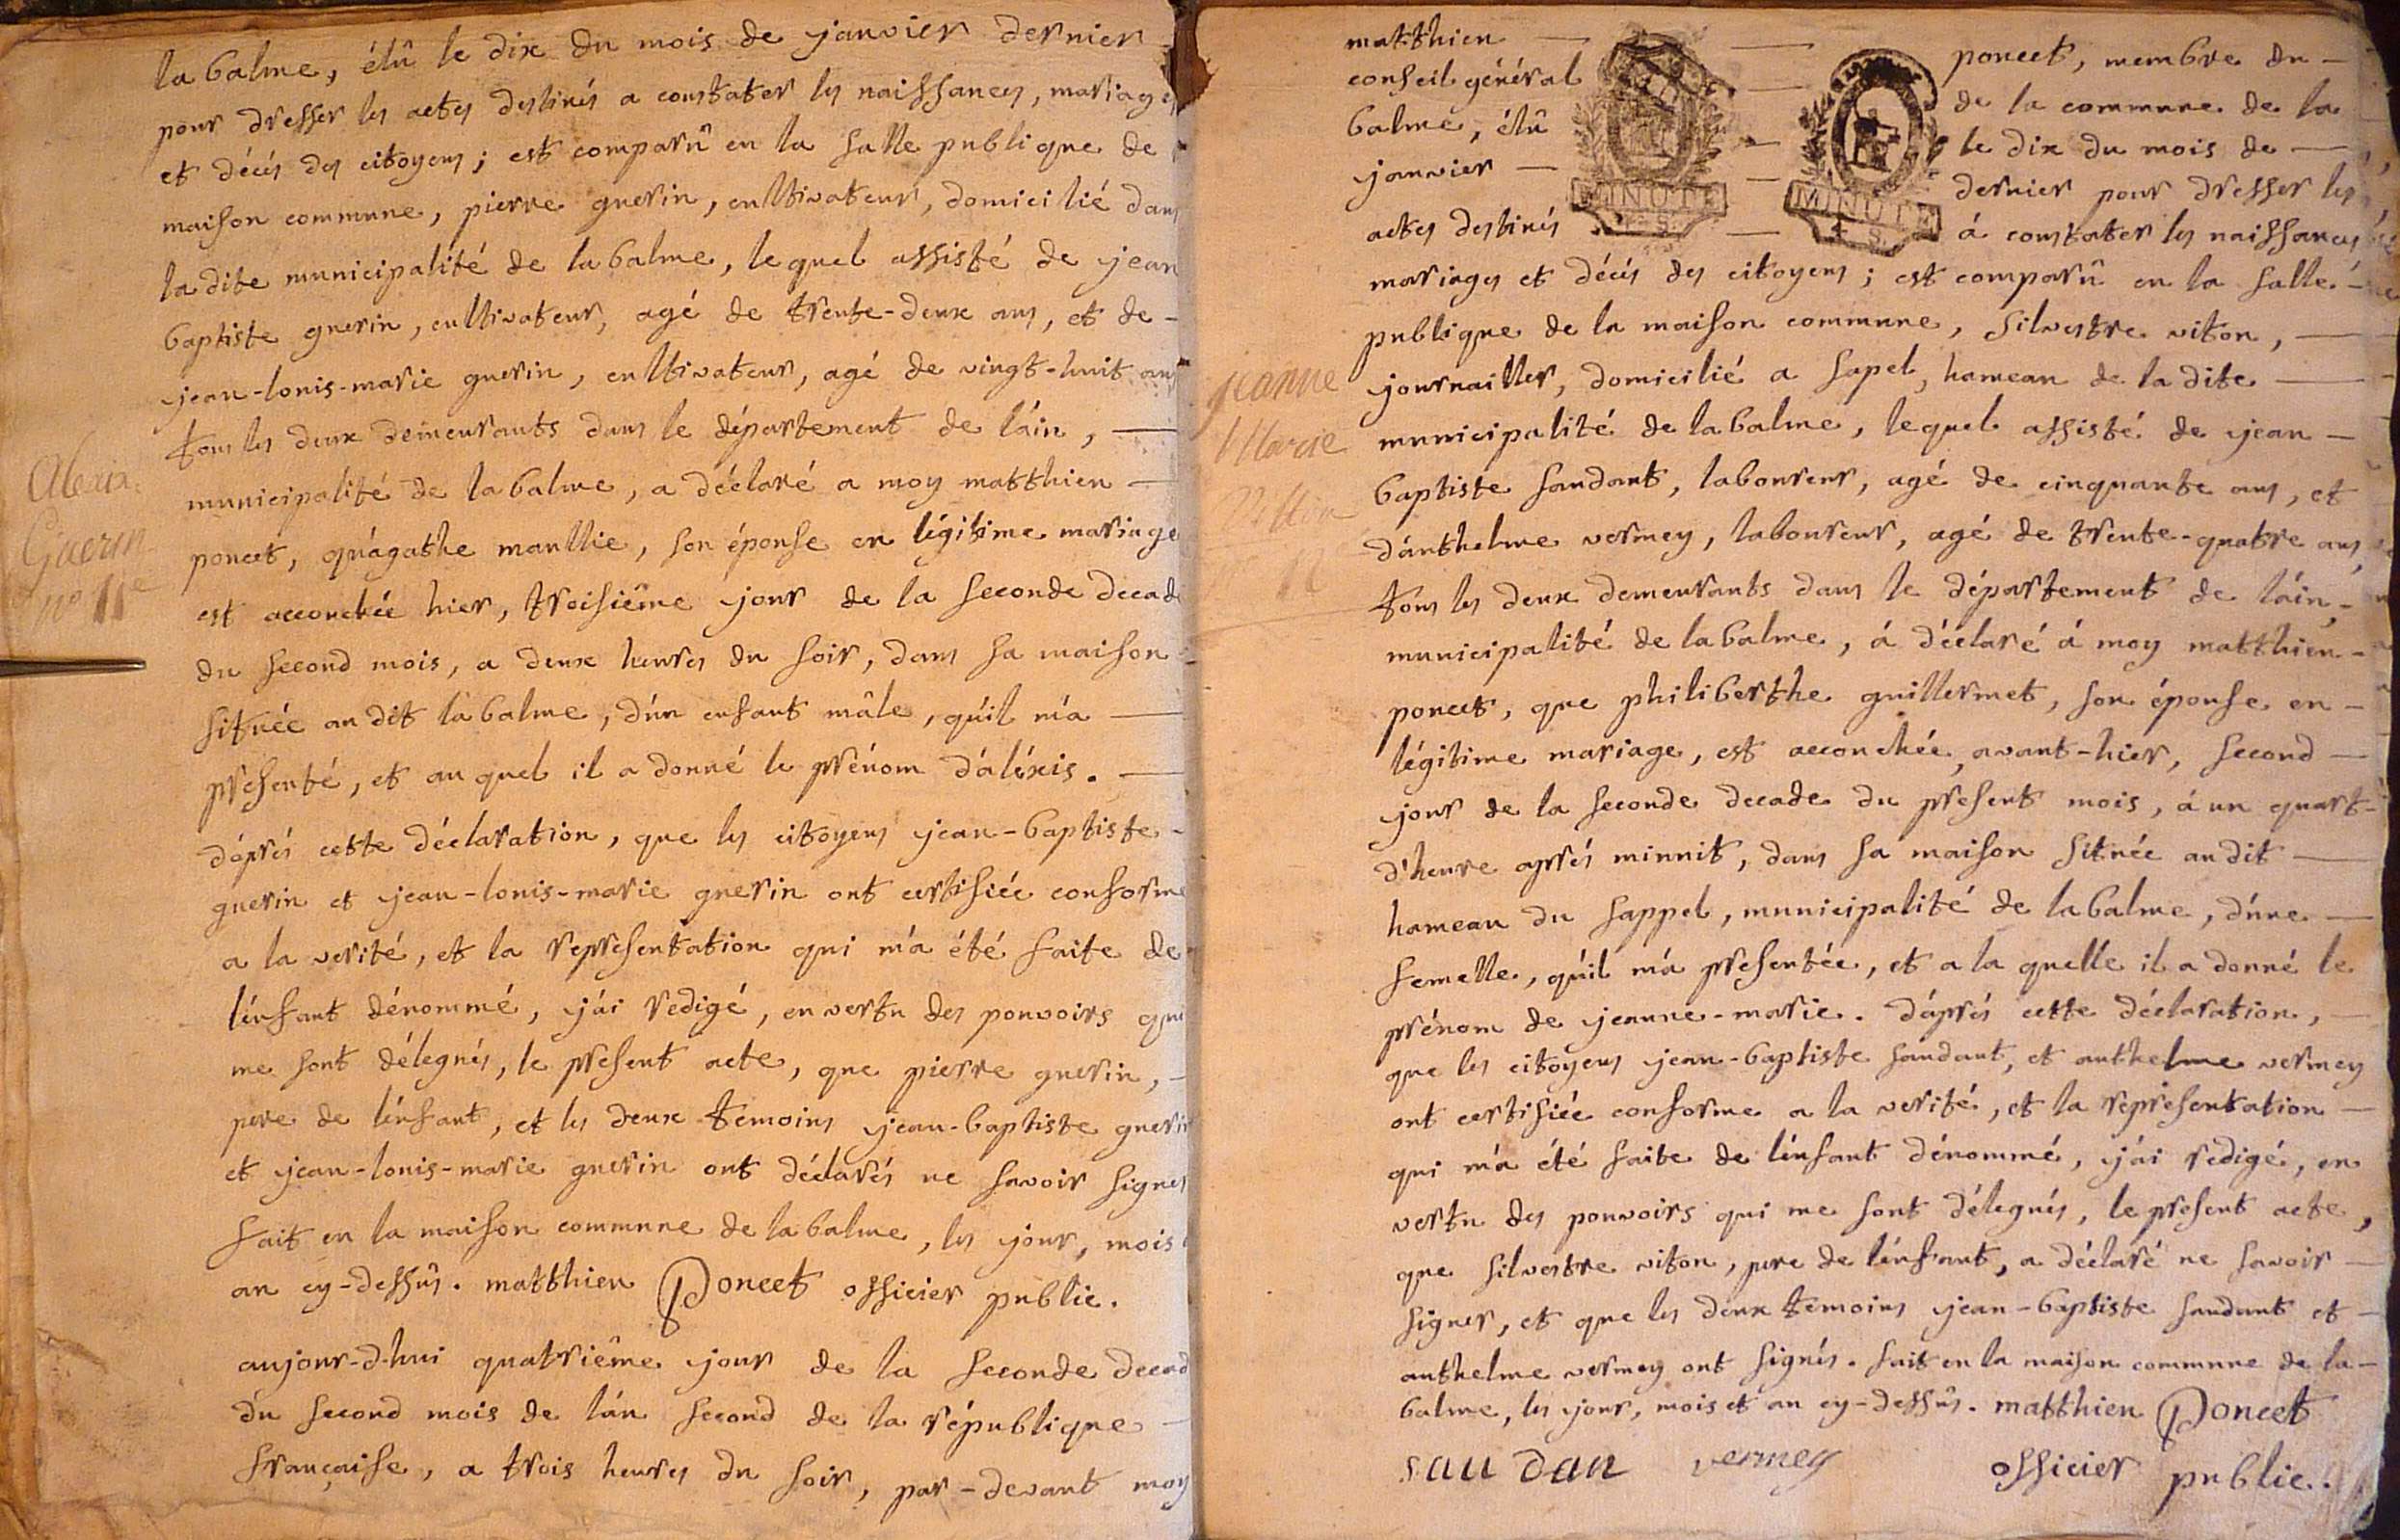 la balme, élû le dix du mois de janvier dernier
pour dresser les actes destinés a constater les naissances, mariages
et décés des citoyens ; est comparû en la salle publique de
maison commune, pierre guerin, cultivateur, domicilié dans
la dite municipalité de la balme, le quel assisté de jean
baptiste guerin, cultivateur, agé de trente-deux ans, et de -
jean-louis-marie guerin, cultivateur, agé de vingt-huit ans
tous les deux demeurants dans le département de láin, —
municipalité de la balme, a déclaré a moy matthieu —
Alexix
Guerin
no 11e
poncet, qu'agathe maullie, son épouse en légitime mariage
est accouchée hier, troisiême jour de la seconde decade
du second mois, a deux heures du soir, dans sa maison
située au dit la balme, d'un enfant mâle, qu'il m'a —
presenté, et au quel il a donné le prénom d'aléxis. —
d'aprés cette déclaration, que les citoyens jean-baptiste -
guerin et jean-louis-marie guerin ont certifiée conforme
a la verité, et la representation qui m'a été faite de
l'enfant dénommé, j'ai redigé, en vertu des pouvoirs qui
me sont délegués, le present acte, que pierre guerin, -
pere de l'enfant, et les deux temoins jean-baptiste guerin
et jean-louis-marie guerin ont déclarés ne savoir signer
fait en la maison commune de la balme, les jour, mois
an cy-dessûs. matthieu Poncet officier public.
aujour-d-hui quatriême jour de la seconde decade
du second mois de l'an second de la république —
française, a trois heures du soir, par-devant moy
matthieu — — poncet, membre du —
conseil général — de la commune de la
balme, élû — le dix du mois de —
janvier — — dernier pour dresser les
actes destinés — á constater les naissances
MINUTE
4 S.
MINUTE
4 S.
mariages et décés des citoyens ; est comparû en la salle -
publique de la maison commune, silvestre viton, —
Jeanne
Marie
Vitton
12e
journailler, domicilié a sapel, hameau de la dite —
municipalité de la balme, le quel assisté de jean —
baptiste saudant, laboureur, agé de cinquante ans, et
d'anthelme vermey, laboureur, agé de trente-quatre ans,
tous les deux demeurants dans le département de láin, -
municipalité de la balme, á déclaré á moy matthieu -
poncet, que philiberthe guillermet, son épouse en —
légitime mariage, est accouchée, avant-hier, second —
jour de la seconde decade du present mois, á un quart-
d'heure aprés minnit, dans sa maison située au dit —
hameau du sappel, municipalité de la balme, d'une —
femelle, qu'il m'a presentée, et a la quelle il a donné le
prénom de jeanne-marie. d'aprés cette déclaration, —
que les citoyens jean-baptiste saudant, et anthelme vermey
ont certifiée conforme a la verité, et la representation —
qui m'a été faite de l'enfant dénommé, j'ai redigé, en
vertu des pouvoirs qui me sont délegués, le present acte,
que silvestre viton, pere de l'enfant, a déclaré ne savoir —
signer, et que les deux temoins jean-baptiste saudant et —
anthelme vermey ont signés. fait en la maison commune de la -
balme, les jour, mois et an cy-dessûs. matthieu Poncet
saudan vermey officier public.